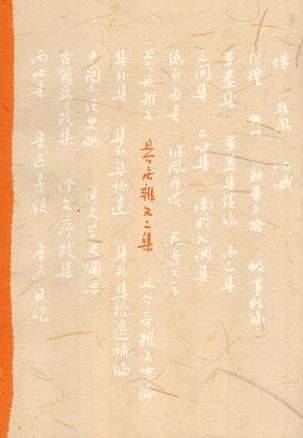 坟 热风 呐喊
彷徨 野草 朝华夕拾 故事新编
华盖集 华盖集续编 而已集
三闲集 二心集 南腔北调集
伪自由书 准风月谈 花边文学
且介亭杂文 且介亭杂文二集 且介亭杂文末编
集外集 集外集拾遗 集外集拾遗补编
中国小说史略 汉文学史纲要
古籍序跋集 译文序跋集
两地书 鲁迅书信 鲁迅日记